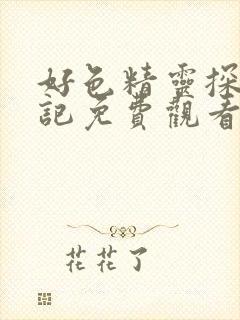 好色精靈探
記免費觀看
花花了